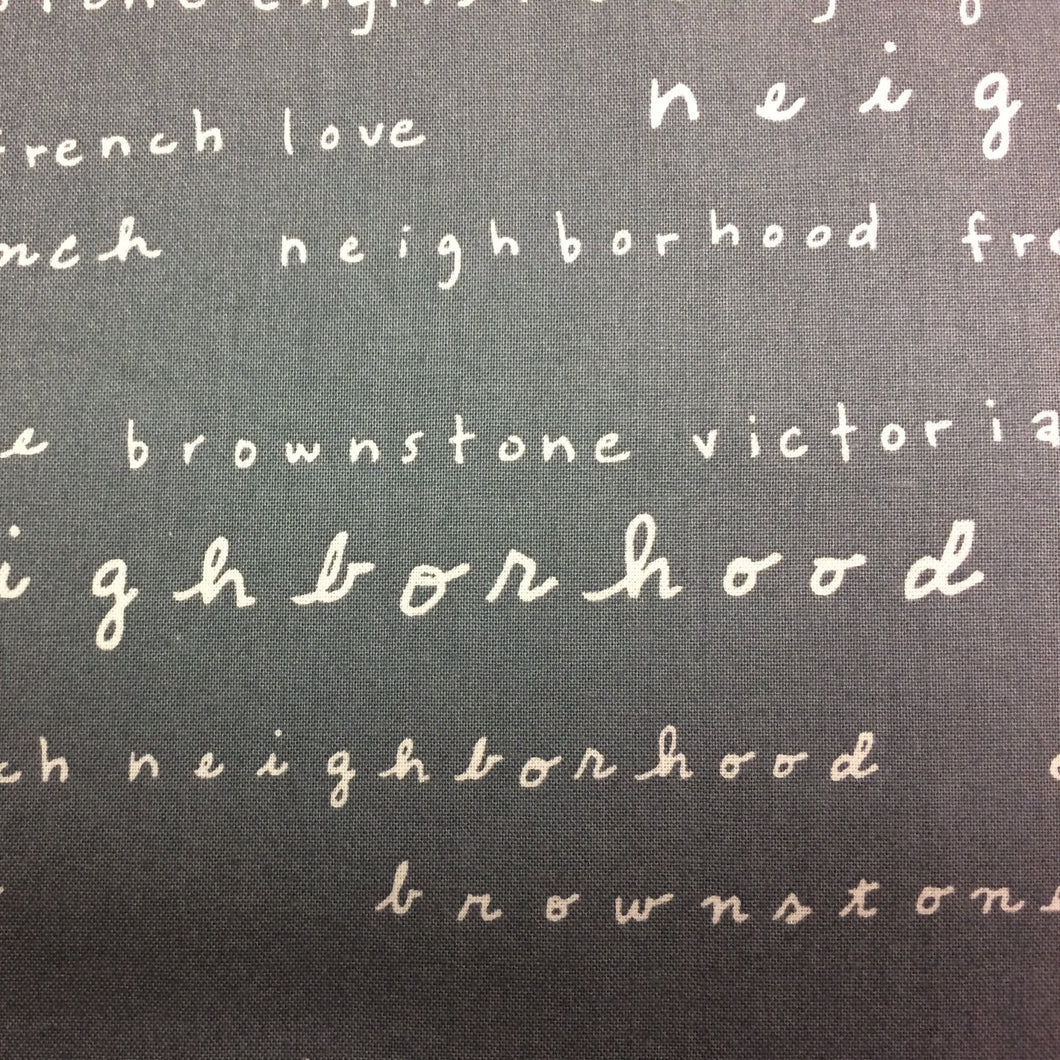 stone english
french love neig
nch neighborhood fre
e brownstone victoria
ighborhood
ch neighborhood
brownstone